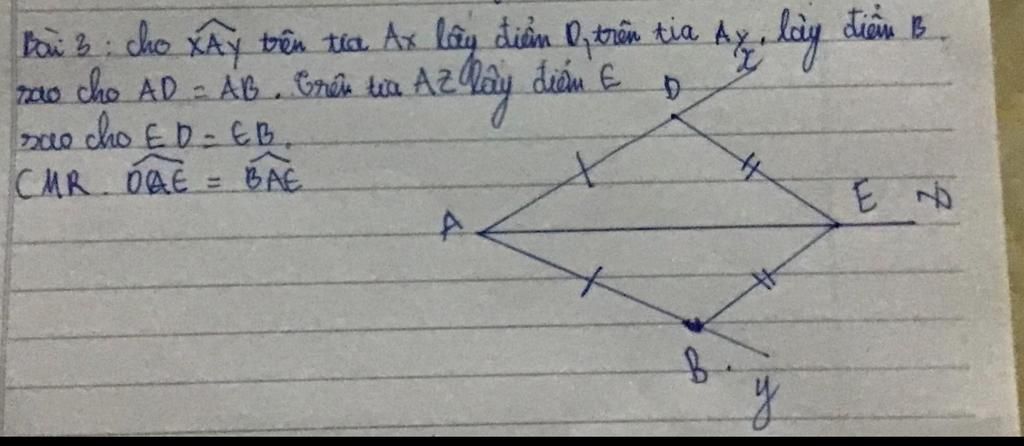 Bài 3: cho xAy trên tia Ax lấy điểm D, trên tia Ay, lấy điểm B
sao cho AD = AB. Trên tia AZ lấy điểm E
sao cho ED = EB.
CMR. DAE = BAE
x
D
E
A
B.
y